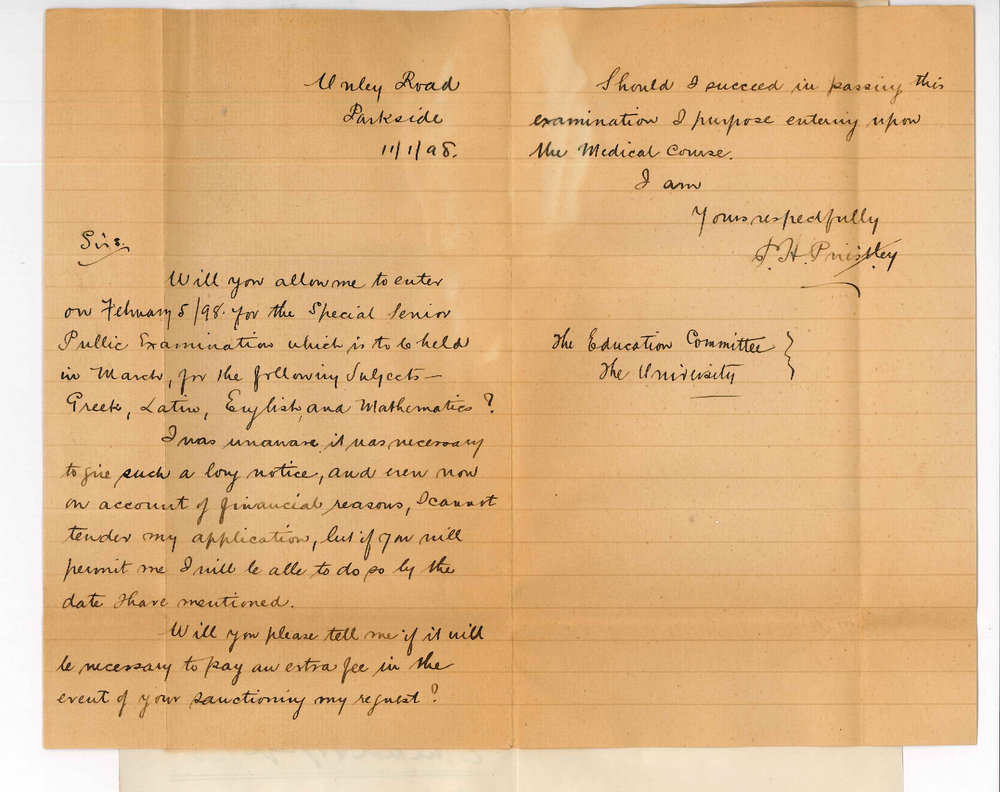 Unley Road
Parkside
11/1/98.
Sirs.
Will you allow me to enter
on February 5/98. for the Special Senior
Public Examination which is to be held
in March, for the following Subjects —
Greek, Latin, English, and Mathematics?
I was unaware it was necessary
to give such a long notice, and even now
on account of financial reasons, I cannot
tender my application, but if you will
permit me I will be able to do so by the
date I have mentioned.
Will you please tell me if it will
be necessary to pay an extra fee in the
event of your sanctioning my request?
Should I succeed in passing this
examination I purpose entering upon
the Medical Course.
I am
Yours respectfully
H. Priestley
The Education Committee
The University